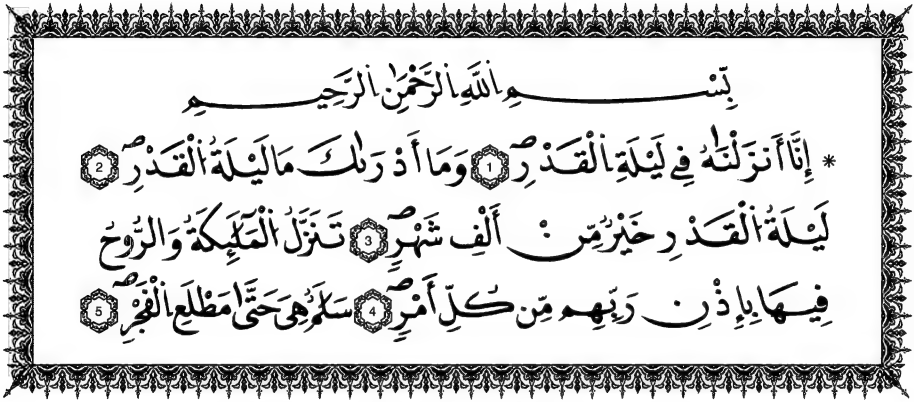 بِسْمِ اِللَّهِ اِلرَّحْمَٰنِ اِلرَّحِيمِ
* إِنَّا أَنزَلْنَٰهُ فِي لَيْلَةِ اِلْقَدْرِ 1 وَمَا أَدْرَىٰكَ مَا لَيْلَةُ اُلْقَدْرِ 2
لَيْلَةُ اُلْقَدْرِ خَيْرٌ مِّنْ أَلْفِ شَهْرٍ 3 تَنَزَّلُ اُلْمَلَٰٓئِكَةُ وَالرُّوحُ
فِيهَا بِإِذْنِ رَبِّهِم مِّن كُلِّ أَمْرٍ 4 سَلَٰمٌ هِيَ حَتَّىٰ مَطْلَعِ اِلْفَجْرِ 5